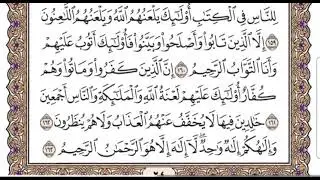 لِلنَّاسِ فِي الْكِتَٰبِ أُوْلَٰٓئِكَ يَلْعَنُهُمُ اللَّهُ وَيَلْعَنُهُمُ اللَّٰعِنُونَ
١٥٩ إِلَّا الَّذِينَ تَابُوا۟ وَأَصْلَحُوا۟ وَبَيَّنُوا۟ فَأُو۟لَٰٓئِكَ أَتُوبُ عَلَيْهِمْ
وَأَنَا التَّوَّابُ الرَّحِيمُ ١٦٠ إِنَّ الَّذِينَ كَفَرُوا۟ وَمَاتُوا۟ وَهُمْ
كُفَّارٌ أُو۟لَٰٓئِكَ عَلَيْهِمْ لَعْنَةُ اللَّهِ وَالْمَلَٰٓئِكَةِ وَالنَّاسِ أَجْمَعِينَ
١٦١ خَٰلِدِينَ فِيهَا لَا يُخَفَّفُ عَنْهُمُ الْعَذَابُ وَلَا هُمْ يُنظَرُونَ ١٦٢
وَإِلَٰهُكُمْ إِلَٰهٌ وَٰحِدٌ لَّآ إِلَٰهَ إِلَّا هُوَ الرَّحْمَٰنُ الرَّحِيمُ ١٦٣